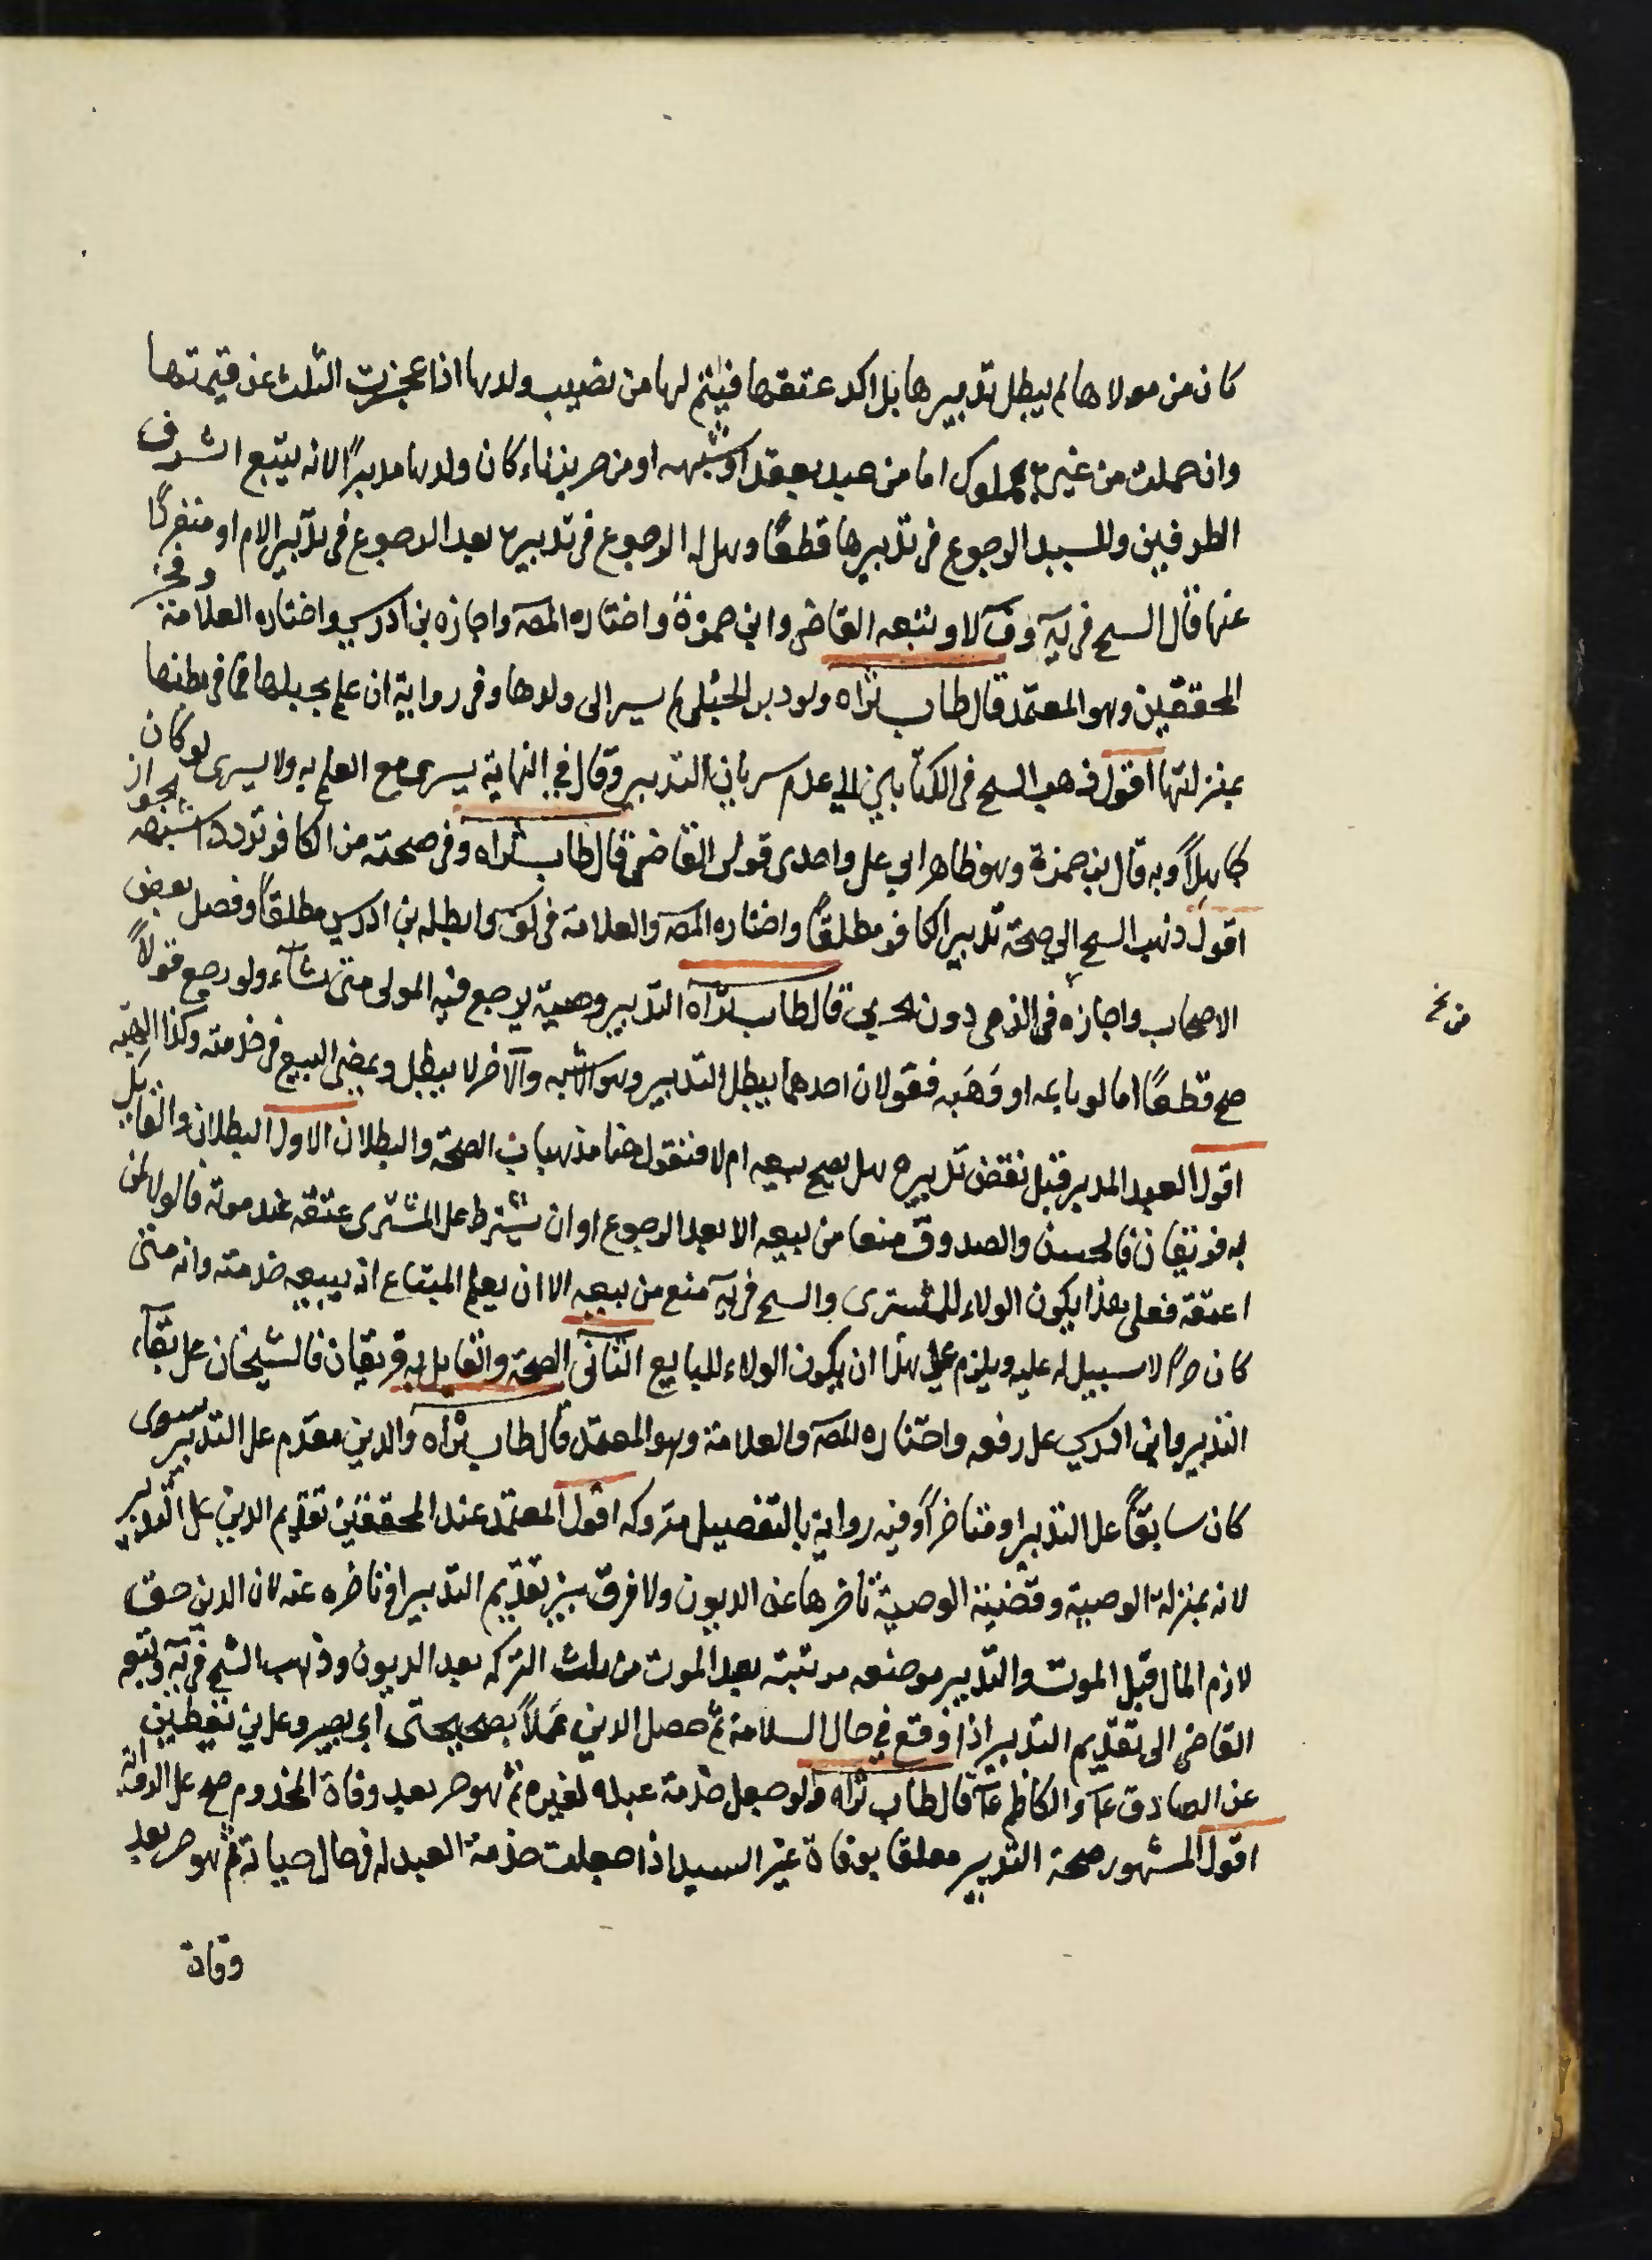 كان من مولاها لم يبطل تدبيرها بل اكد عتقها فيتم لها من نصيب ولدها اذا عجزت الثلث عن قيمتها
وان حملت من غيره بمملوك اما من عبد بعقد او شبهه او من حر بزناء كان ولدها مدبرًا لانه يتبع اشرف
الطرفين وللسيد الرجوع فى تدبيرها قطعًا وهل له الرجوع فى تدبيره بعد الرجوع فى تدبير الام او منفردًا
عنها قال الشيخ فى يه وف لا وتبعه القاضى وابن حمزة واختاره المصه واجازه بن ادريس واختاره العلامة وفخر
المحققين وهو المعتمد قال طاب ثراه ولو دبر الحبلى لم يسر الى ولدها وفى رواية ان علم بحبلها فما فى بطنها
بمنزلتها اقول ذهب الشيخ فى الكتابين الى عدم سريان التدبير وقال فى النهاية يسرى مع العلم به ولا يسرى لو كان
جاهلًا وبه قال بن حمزة وهو ظاهر ابي على واحدى قولى القاضى قال طاب ثراه وفى صحته من الكافر تردد اشبهه الجواز
اقول ذهب الشيخ الي صحة تدبير الكافر مطلقًا واختاره المصه والعلامة فى لف وابطله بن ادريس مطلقًا وفصل بعض
الاصحاب واجازه فى الذمى دون الحربي قال طاب ثراه التدبير وصية يرجع فيه المولى متى شآء ولو رجع قولًا
صح قطعًا اما لو باعه او وَهَبَه فقولان احدهما يبطل التدبير وهو الاشبه والآخر لا يبطل ويمضى البيع فى خدمته وكذا الهبة
اقول العبد المدبر قبل نقض تدبيره هل يصح بيعه ام لا فنقول هنا مذهبان الصحة والبطلان الاول البطلان والقايل
به فريقان فالحسن والصدوق منعا من بيعه الا بعد الرجوع او ان يشترط على المشترى عتقه عند موته قالوا لو لان
اعتقه فعلى هذا يكون الولاء للمشترى والشيخ فى يه منع من بيعه الا ان يعلم المبتاع انه يبيعه خدمته وانه متى
كان حرًا لا سبيل له عليه ويلزم على هذا ان يكون الولاء للبايع الثانى الصحة والقايل به فريقان فالشيخان على بقآء
التدبير وابن ادريس على رفعه واختاره المصه والعلامة وهو المعتمد قال طاب ثراه والدين مقدم على التدبير سوى
كان سابقًا على التدبير او متاخرًا وفيه رواية بالتفصيل متروكه اقول المعتمد عند المحققين تقديم الدين على التدبير
لانه بمنزلة الوصية وقضية الوصية تاخرها عن الديون ولا فرق بين تقديم التدبير او تاخره عنه لان الدين حق
لازم المال قبل الموت والتدبير موضعه مرتبته بعد الموت من ثلث التركه بعد الديون وذهب الشيخ فى يه وتبعه
القاضى الى تقديم التدبير اذا وقع في حال السلامة ثم حصل الدين عَمَلًا بصحيحتى ابي بصير وعلي بن يقطين
عن الصادق عآ والكاظم عآ قال طاب ثراه ولو جعل خدمة عبده لغيره ثم هو حر بعد وفاة المخدوم صح على الرواية
اقول المشهور صحة التدبير معلقا بوفاة غير السيد اذا جعلت خدمة العبد له فى حال حياته ثم هو حر بعد
وفاة